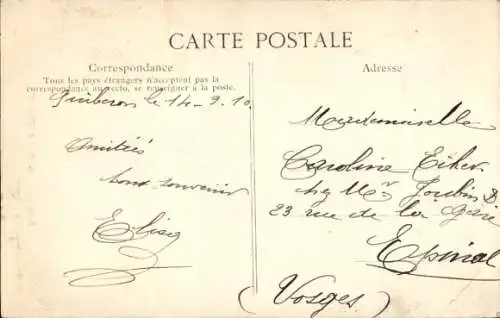 CARTE POSTALE
Correspondance
Tous les pays étrangers n'acceptent pas la
correspondance au recto, se renseigner à la poste.
Quiberon le 14-9.10.
Amitiés
bons souvenirs
Elisa
Adresse
Mademoiselle
Caroline
chez Mr
23 rue de la Gare
Epinal
(Vosges)